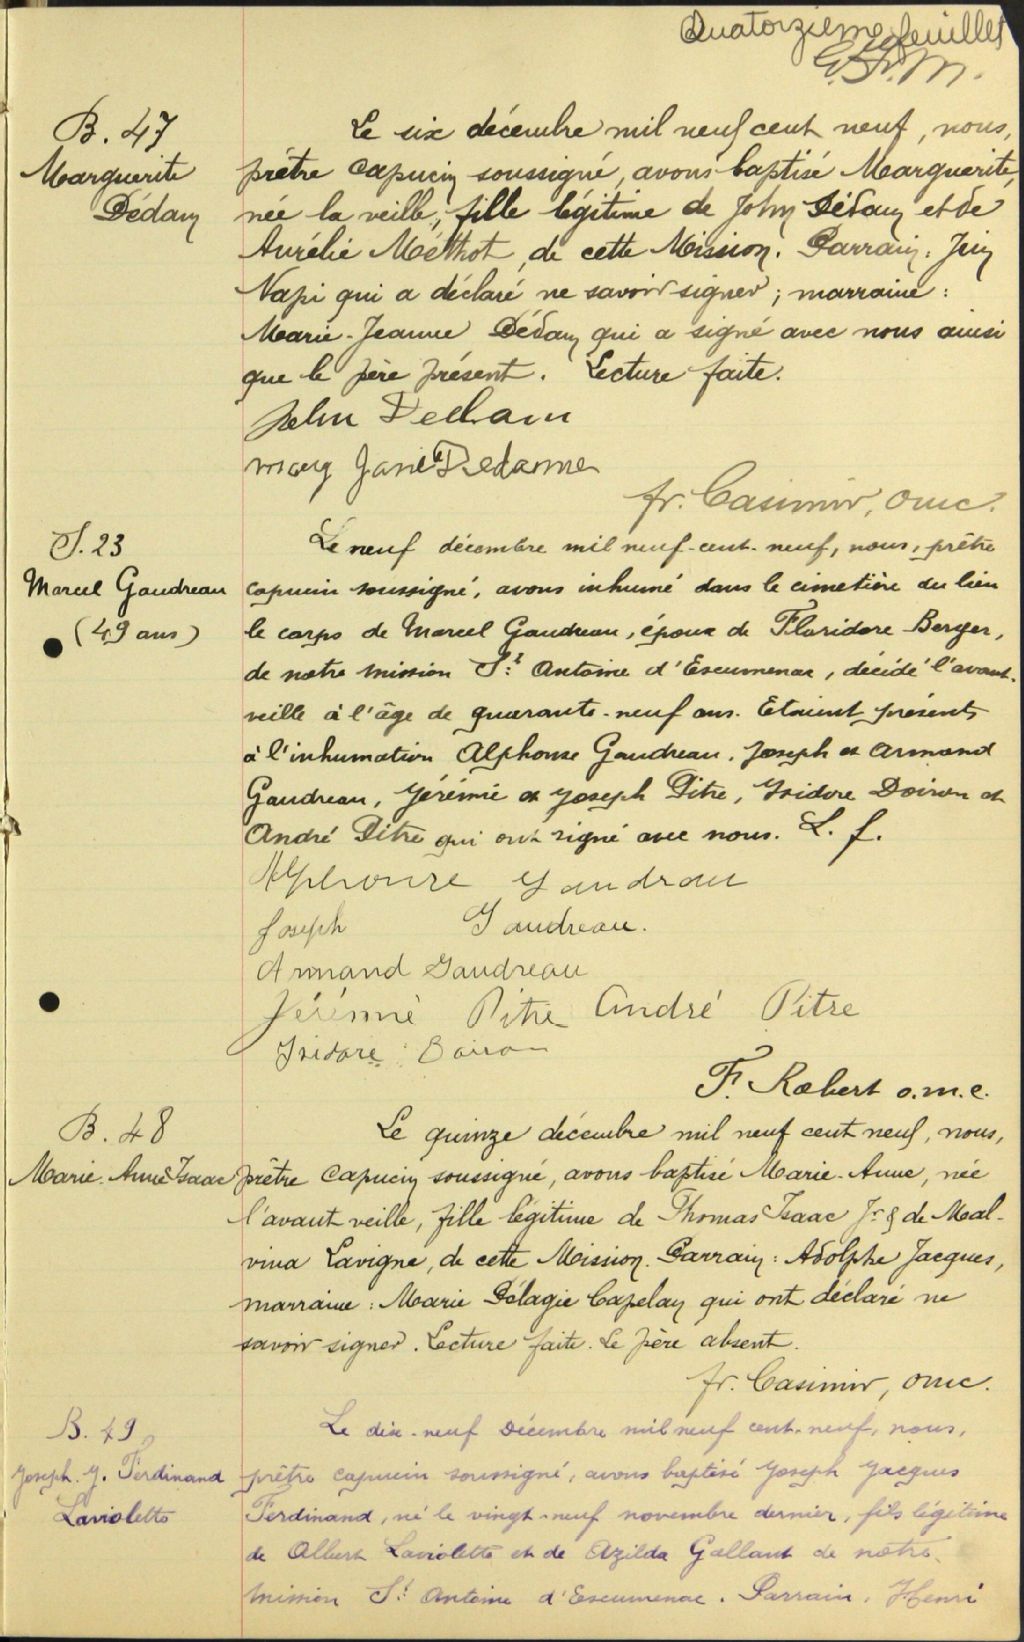 Quatorzième feuillet
B. 47
Marguerite
Dédam
Le six décembre mil neuf cent neuf, nous,
prêtre capucin soussigné, avons baptisé Marguerite,
née la veille, fille légitime de John Dédam et de
Aurélie Méthot, de cette Mission. Parrain: Jim
Napi qui a déclaré ne savoir signer; marraine:
Marie-Jeanne Dédam qui a signé avec nous ainsi
que le père présent. Lecture faite.
John Dedham
mary Jane Dedamme
fr. Casimir, omc.
S. 23
Marcel Gaudreau
(49 ans)
Le neuf décembre mil neuf-cent-neuf, nous, prêtre
capucin soussigné, avons inhumé dans le cimetière du lieu
le corps de Marcel Gaudreau, époux de Floridore Berger,
de notre mission St Antoine d'Escumenac, décédé l'avant-
veille à l'âge de quarante-neuf ans. Etaient présents
à l'inhumation Alphonse Gaudreau, Joseph et Armand
Gaudreau, Jérémie et Joseph Pitre, Isidore Doiron et
André Pitre qui ont signé avec nous. L. f.
Alphonse Gaudrau
Joseph Gaudreau.
Armand Gaudreau
Jérémie Pitre André Pitre
Isidore Doiron
F. Robert o.m.c.
B. 48
Marie-Anne Isaac
Le quinze décembre mil neuf cent neuf, nous,
prêtre capucin soussigné, avons baptisé Marie-Anne, née
l'avant veille, fille légitime de Thomas Isaac Jr & de Mal-
vina Lavigne, de cette Mission. Parrain: Adolphe Jacques,
marraine: Marie Pélagie Capelan qui ont déclaré ne
savoir signer. Lecture faite. Le père absent.
fr. Casimir, omc.
B. 49
Joseph. J. Ferdinand
Laviolette
Le dix-neuf Décembre mil neuf cent-neuf, nous,
prêtre capucin soussigné, avons baptisé Joseph Jacques
Ferdinand, né le vingt-neuf novembre dernier, fils légitime
de Albert Laviolette et de Azilda Gallant de notre
mission St Antoine d'Escumenac. Parrain, Henri